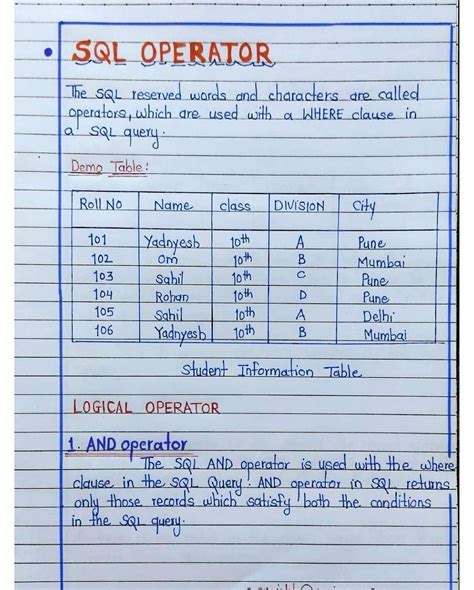 SQL OPERATOR
The SQL reserved words and characters are called
operators, which are used with a WHERE clause in
a SQL query.
Demo Table:
Roll No Name class DIVISION City
101 Yadnyesh 10th A Pune
102 Om 10th B Mumbai
103 Sahil 10th C Pune
104 Rohan 10th D Pune
105 Sahil 10th A Delhi
106 Yadnyesh 10th B Mumbai
Student Information Table
LOGICAL OPERATOR
1. AND operator
The SQL AND operator is used with the where
clause in the SQL Query. AND operator in SQL returns
only those records which satisfy both the conditions
in the SQL query.